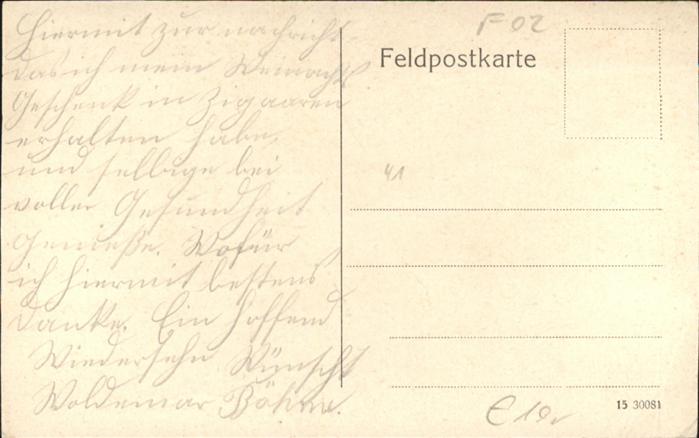 Hiermit zur nachricht
das ich mein Weinachts
Geschenk in Zigaaren
erhalten habe.
und selbige bei
voller Gesundheit
Genieße. Wofür
ich hiermit bestens
Danke. Ein hoffend
Wiedersehn Wünscht
Woldemar Böhme.
F 02
Feldpostkarte
41
15 30081